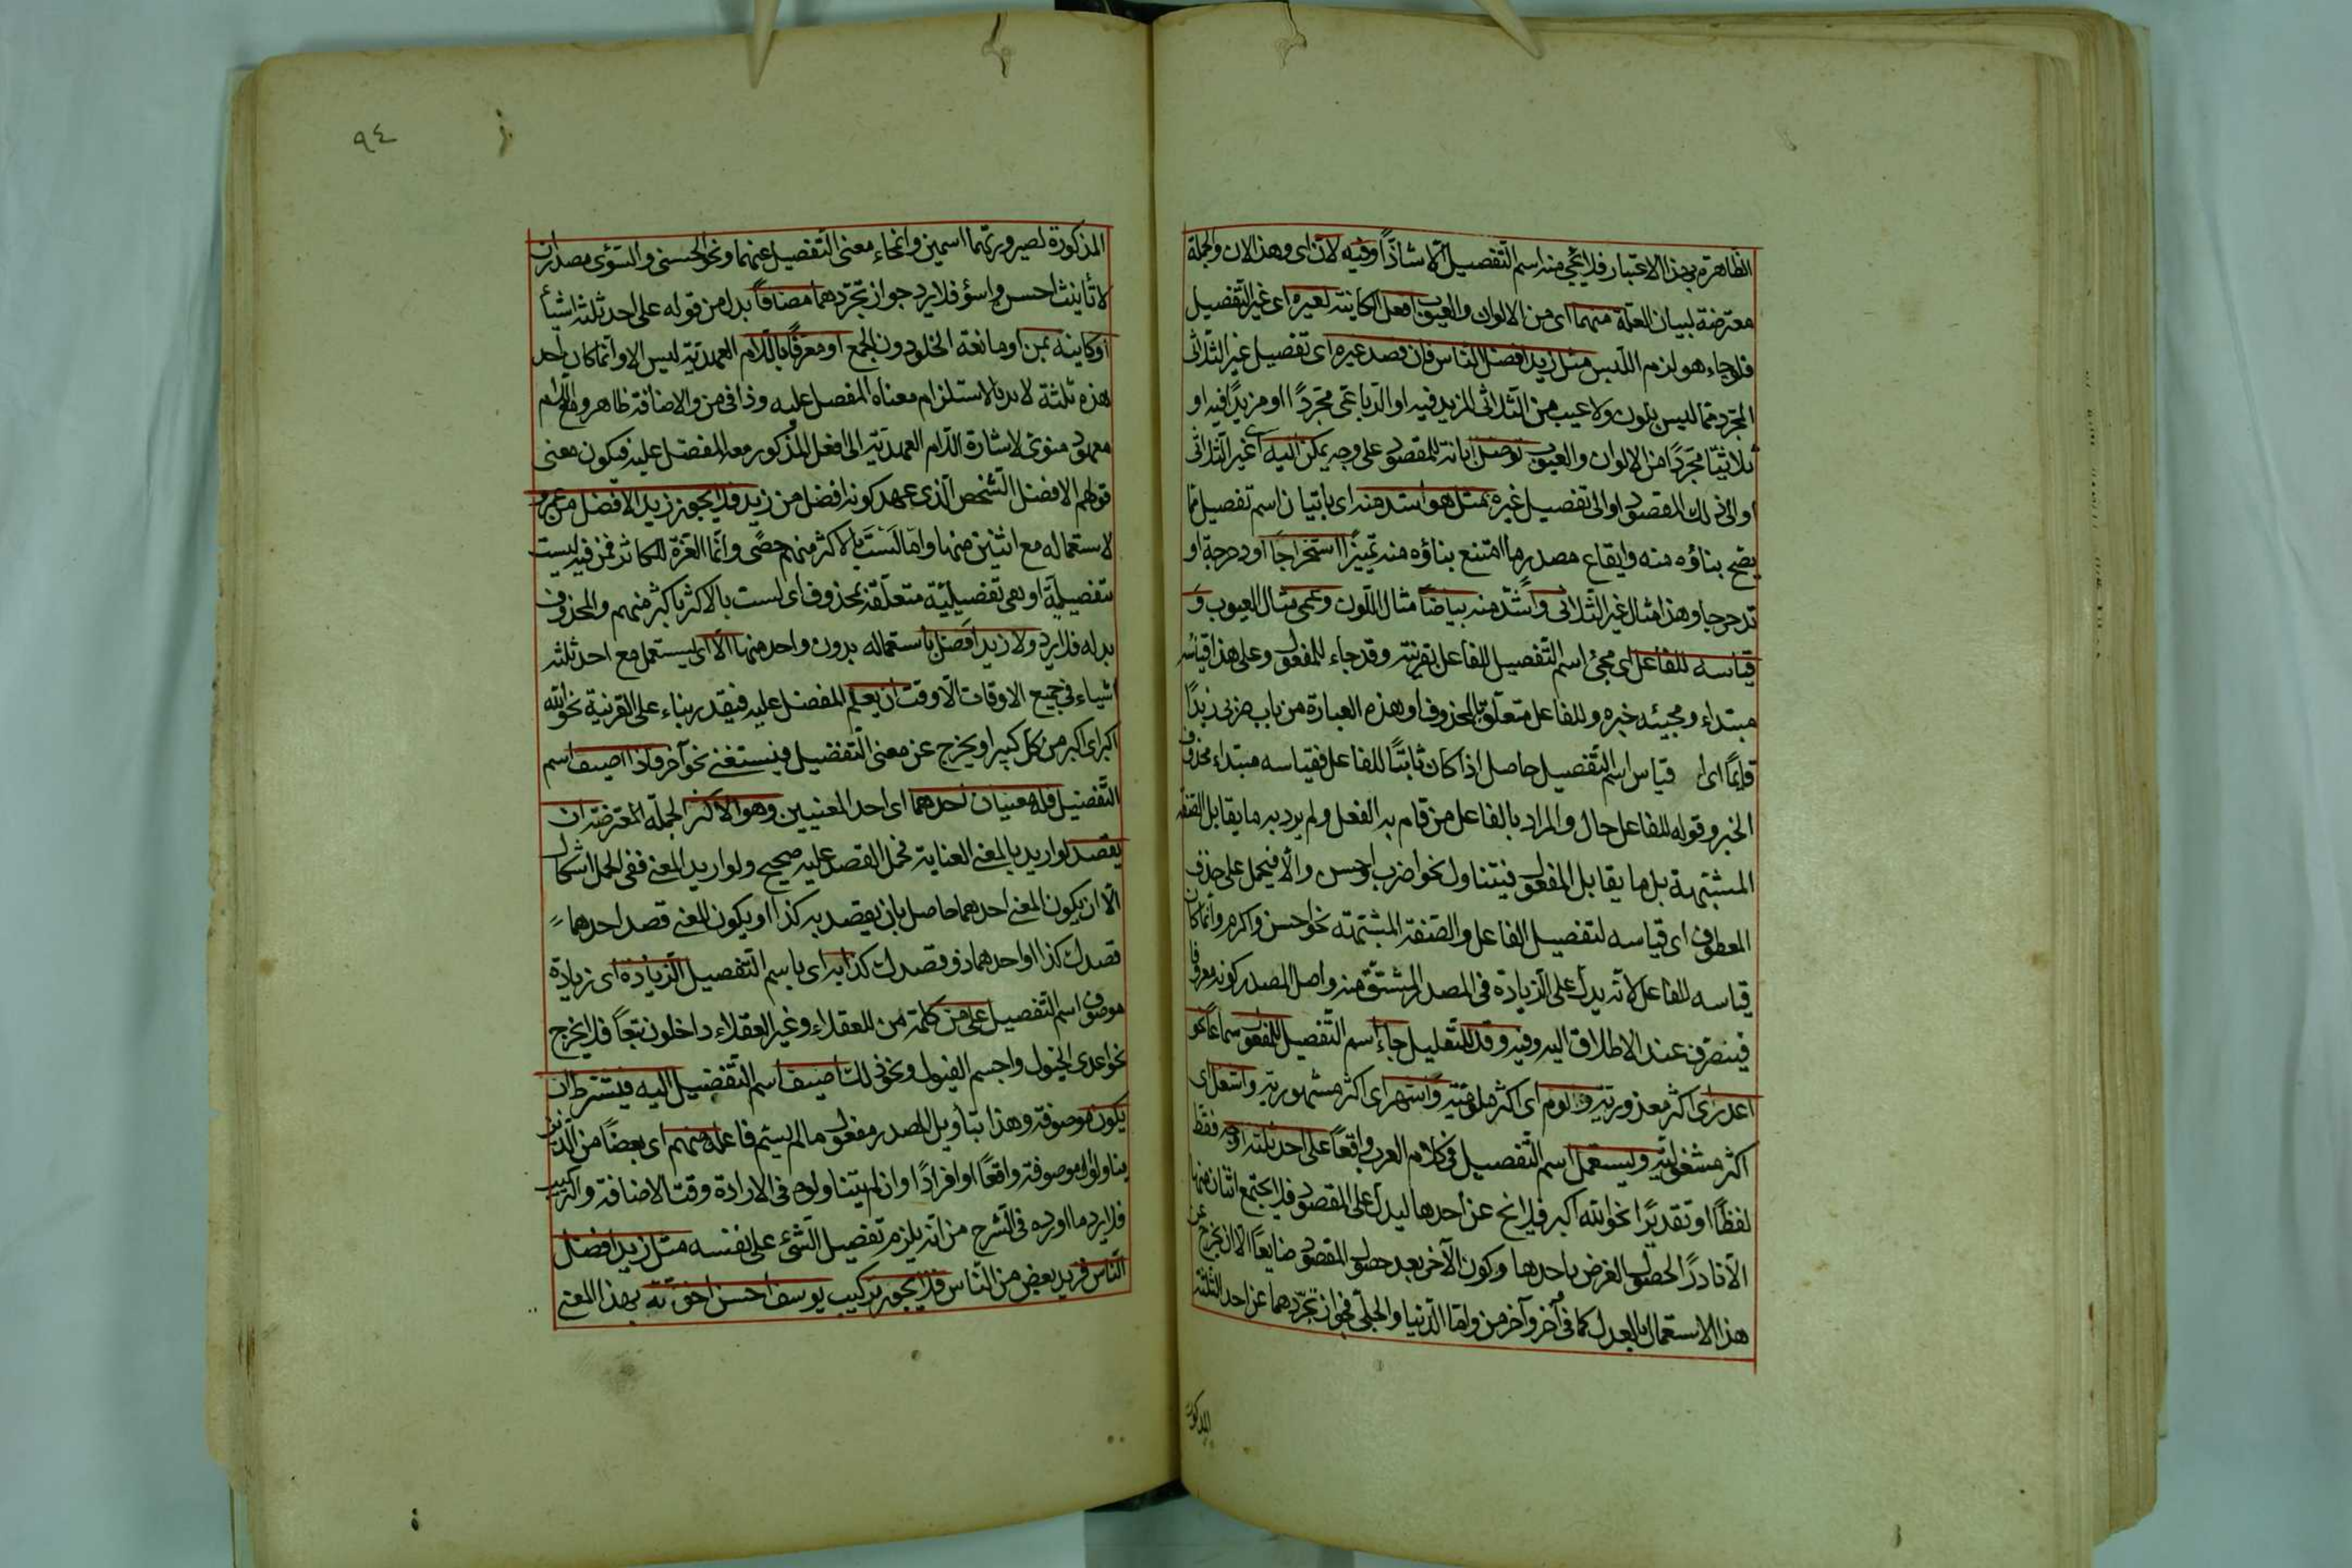 الظاهرة بهذا الاعتبار فلا يجئ منه اسم التفصيل الا شاذا وفيه لان اى وهذا لان والجملة
معترضة لبيان العلة منهما اى من الالوان والعيوب افعل الكاينة لغيره اى غير التفصيل
فلو جاء هو لزم اللبس مثل زيد افضل الناس فان قصد غيره اى تفصيل غير الثلاثى
المجرد مما ليس بلون ولا عيب من الثلاثى المزيد فيه او الرباعى مجردا او مزيدا فيه او
ثلاثيا مجردا من الالوان والعيوب توصل ابانة للمقصود على وجه يمكن اليه اى غير الثلاثى
او الى ذلك المقصود او الى تفصيل غيره بمثل هو اشد منه اى باتيان اسم تفصيل مما
يصح بناؤه منه وايقاع مصدر ما امتنع بناؤه منه تميزا استخراجا او دحرجة او
تدحرجا وهذا مثال غير الثلاثى واشد منه بياضا مثال اللون وعمى مثال العيوب و
قياسه للفاعل اى مجئ اسم التفصيل للفاعل بقرينة وقد جاء للمفعول وعلى هذا قياسه
مبتداء ومجيئه خبره وللفاعل متعلق المحذوف او هذه العبارة من باب ضربى زيدا
قائما اى قياس اسم التفصيل حاصل اذا كان ثابتا للفاعل فقياسه مبتداء محذوف
الخبر وقوله للفاعل حال والمراد بالفاعل من قام به الفعل ولم يرد به ما يقابل الصفة
المشبهة بل ما يقابل المفعول فيتناول نحو اضرب واحسن والا فيحمل على حذف
المعطوف اى قياسه لتفصيل الفاعل والصفة المشبهة نحو احسن واكرم وانما كان
قياسه للفاعل لانه يدل على الزيادة فى المصدر المشتق منه واصل المصدر كونه معروفا
فينصرف عند الاطلاق اليه وفيه وقد للتقليل جاء اسم التفصيل للمفعول سماعا نحو
اعذر اى اكثر معذورية والوم اى اكثر ملومية واشهر اى اكثر مشهورية واشغل اى
اكثر مشغولية ويستعمل اسم التفصيل فى كلام العرب واقعا على احد ثلثة اوجه فقط
لفظا او تقديرا نحو الله اكبر فلا يخ عن احدها ليدل على المقصود فلا يجتمع اثنان منها
الا نادرا لحصول الغرض باحدها وكون الآخر بعد حصول المقصود ضايعا الا ان يخرج عن
هذا الاستعمال بالعدل كما فى آخر وآخر من واما الدنيا والجلى فجواز تجردهما عن احد الثلثة
المذكورة
٩٤
المذكورة لصيرورتهما اسمين وانمحاء معنى التفصيل عنهما ونحو الحسنى والسوئى مصدران
لا تأنيث احسن واسوؤ فلا يرد جواز تجردهما مضافا بدل من قوله على احد ثلثة اشيأ
او كاينة بمن او مانعة الخلو دون الجمع او معرفا باللام العهدية ليس الا وانما كان احد
هذه ثلثة لا بد بالاستلزام معناه المفصل عليه وذا فى من والاضافة ظاهر ومع اللام
معهود منوى لاشارة اللام العهدية الى افعل المذكور معه المفضل عليه فيكون معنى
قولهم الافضل الشخص الذى عهد كونه افضل من زيد فلا يجوز زيد الافضل من عمرو
لاستعماله مع اثنين منها واما لَسْتَ بالاكثر منهم حصًى وانما العزة للكاثر فمن فيه ليست
تفصيلية او هى تفضيلية متعلقة بمحذوف اى لست بالاكثر باكثر منهم والمحذوف
بدله فلا يرد ولا زيد افضل باستعماله بدون واحد منها الا اى يستعمل مع احد ثلثة
اشياء فى جميع الاوقات الا وقت ان يعلم المفضل عليه فيقدر بناء على القرينة نحو الله
اكبر اى اكبر من كل كبير او يخرج عن معنى التفضيل فيستغنى نحو آخر فاذا اضيف اسم
التفضيل فله معنيان احدهما اى احد المعنيين وهو الاكثر الجملة المعترضة ان
يقصد لو اريد بالمعنى العناية فحمل القصد عليه صحيح ولو اريد المعنى ففى الحمل اشكال
الا ان يكون المعنى احدهما حاصل بان يقصد به كذا او يكون المعنى قصد احدهما
قصدك كذا او احدهما ذو قصدك كذا به اى باسم التفصيل الزيادة اى زيادة
موصوف اسم التفصيل على من كلمة من للعقلاء وغير العقلاء داخلون تبعا فلا يخرج
نحو اعدى الخيول واجسم الفيول ونحو ذلك اضيف اسم التفضيل اليه فيشترط ان
يكون موصوفه وهذا بتأويل المصدر مفعول ما لم يسم فاعله منهم اى بعضا من الذين
يتناولوا موصوفه واقعا او افرادا وان لم يتناولوه فى الارادة وقت الاضافة والتركيب
فلا يرد ما اورده فى الشرح من انه يلزم تفصيل الشئ على نفسه مثل زيد افضل
الناس فزيد بعض من الناس فلا يجوز تركيب يوسف احسن اخوته بهذا المعنى